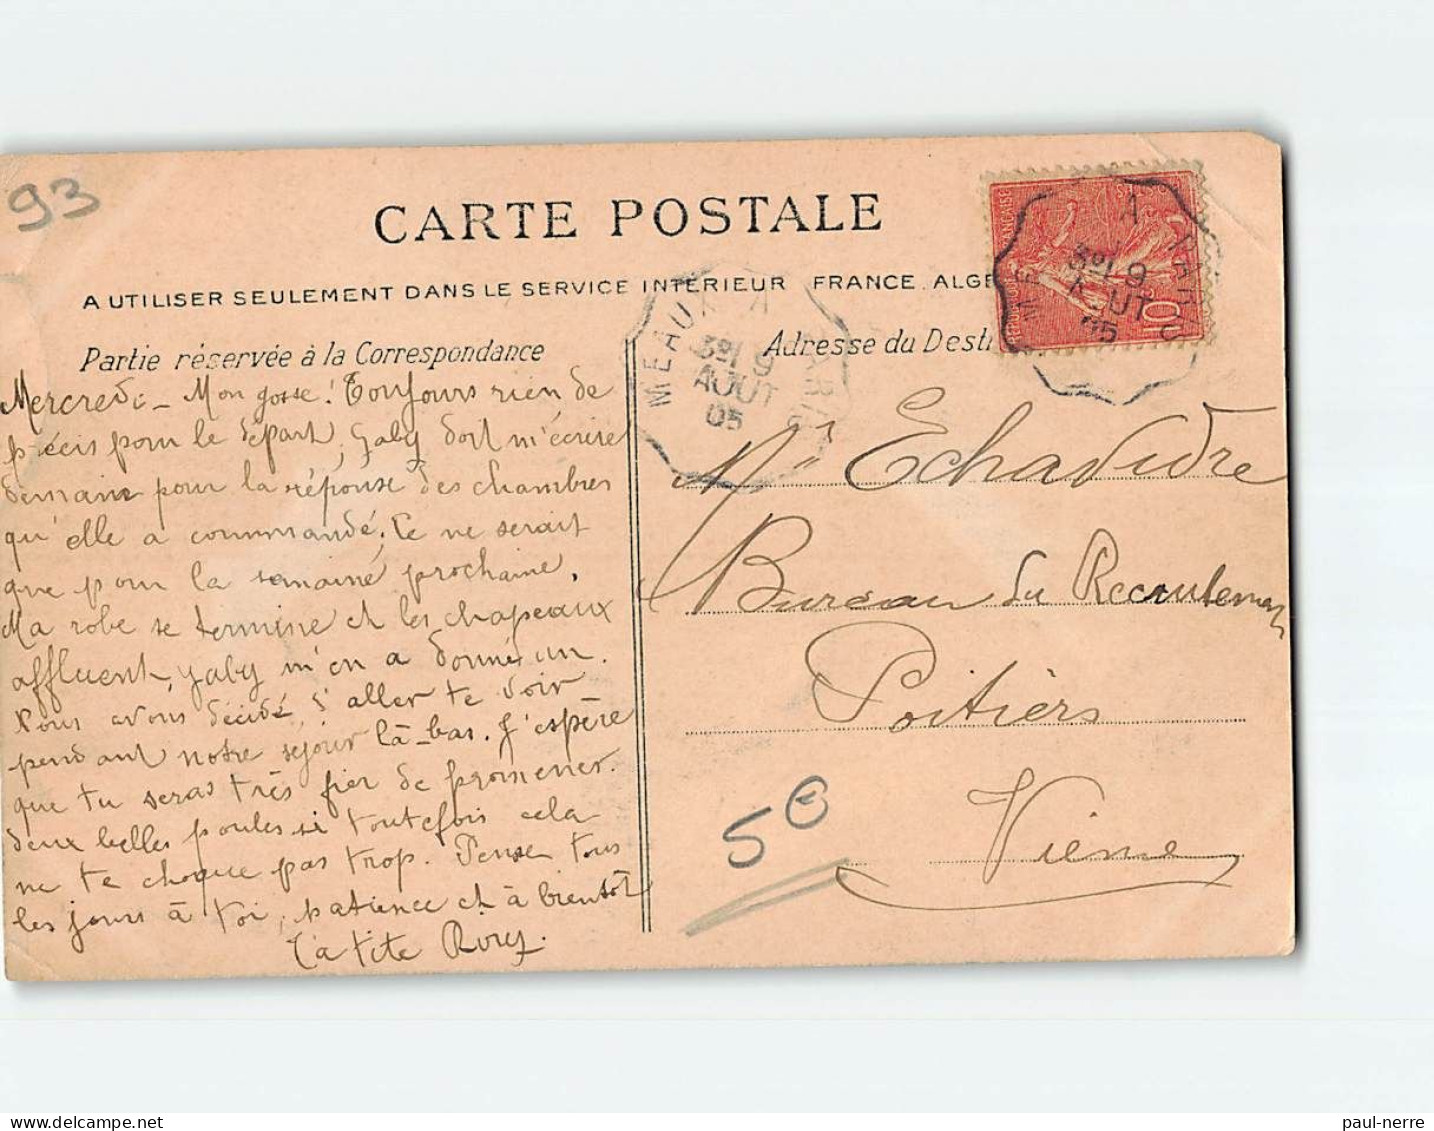 93
CARTE POSTALE
A UTILISER SEULEMENT DANS LE SERVICE INTERIEUR FRANCE. ALGE
Partie réservée à la Correspondance
Adresse du Desti
MEAUX A PARIS
3º/ 9
AOUT
05
A
PARIS
3º/ 9
AOUT
05
10
Mercredi _ Mon gosse ! Toujours rien de
précis pour le départ, Gaby doit m'écrire
demain pour la réponse des chambres
qu'elle a commandé; Ce ne serait
que pour la semaine prochaine.
Ma robe se termine et les chapeaux
affluent, Gaby m'en a donné un.
Nous avons décidé, d'aller te voir
pendant notre séjour là-bas. J'espère
que tu seras très fier de promener
deux belles poules si toutefois cela
ne te choque pas trop. Pense tous
les jours à toi, patience et à bientôt
Ta tite
Mr Echavidre
Bureau du Recrutement
Poitiers
Vienne
5e
paul-nerre